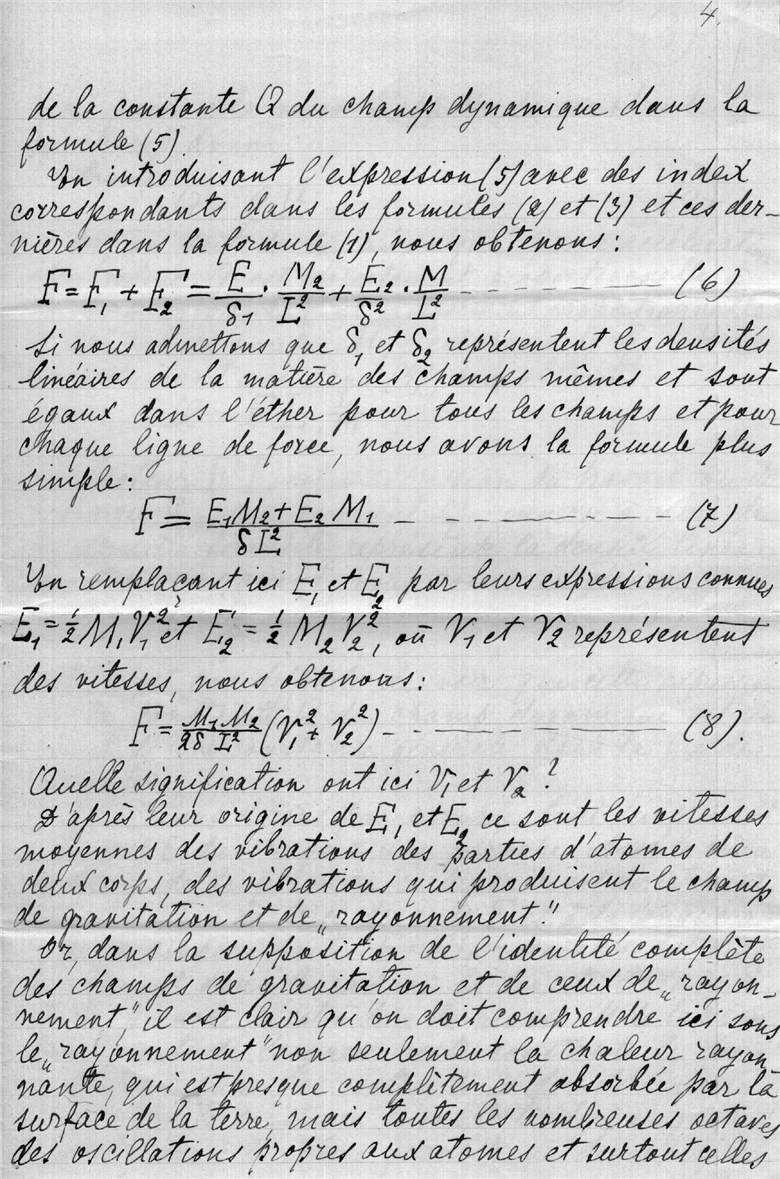 4.
de la constante Q du champ dynamique dans la
formule (5).
En introduisant l'expression (5) avec des index
correspondants dans les formules (2) et (3) et ces der-
nières dans la formule (1), nous obtenons:
F = F₁ + F₂ = E/δ1 · M₂/L² + E₂/δ2 · M/L² - - - - - - (6)
Si nous admettons que δ₁ et δ₂ représentent les densités
linéaires de la matière des champs mêmes et sont
égaux dans l'éther pour tous les champs et pour
chaque ligne de force, nous avons la formule plus
simple:
F = (E₁M₂ + E₂M₁)/(δL²) - - - - - - (7)
En remplaçant ici E₁ et E₂ par leurs expressions connues
E₁ = ½ M₁V₁² et E₂ = ½ M₂V₂², où V₁ et V₂ représentent
des vitesses, nous obtenons:
F = M₁M₂/(2δL²) (V₁² + V₂²) - - - - - - (8).
Quelle signification ont ici V₁ et V₂?
D'après leur origine de E₁ et E₂ ce sont les vitesses
moyennes des vibrations des parties d'atomes de
deux corps, des vibrations qui produisent le champ
de gravitation et de „rayonnement".
Or, dans la supposition de l'identité complète
des champs de gravitation et de ceux de „rayon-
nement", il est clair qu'on doit comprendre ici sous
le „rayonnement" non seulement la chaleur rayon-
nante, qui est presque complètement absorbée par la
surface de la terre, mais toutes les nombreuses octaves
des oscillations propres aux atomes et surtout celles